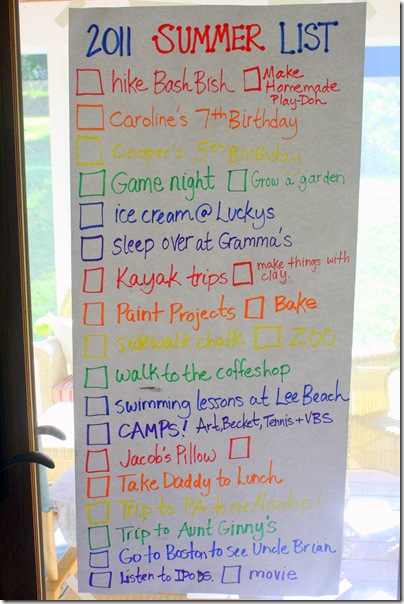 2011 SUMMER LIST
hike Bash Bish
Make
Homemade
Play-Doh
Caroline's 7th Birthday
Cooper's 5th Birthday
Game night Grow a garden
ice cream @ Luckys
sleep over at Gramma's
Kayak trips
make things with
clay.
Paint Projects Bake
sidewalk chalk ZOO
walk to the coffeshop
swimming lessons at Lee Beach
CAMPS! Art, Becket, Tennis + VBS
Jacob's Pillow
Take Daddy to Lunch
Trip to PA to see
Trip to Aunt Ginny's
Go to Boston to see Uncle Brian
Listen to IPODS. movie